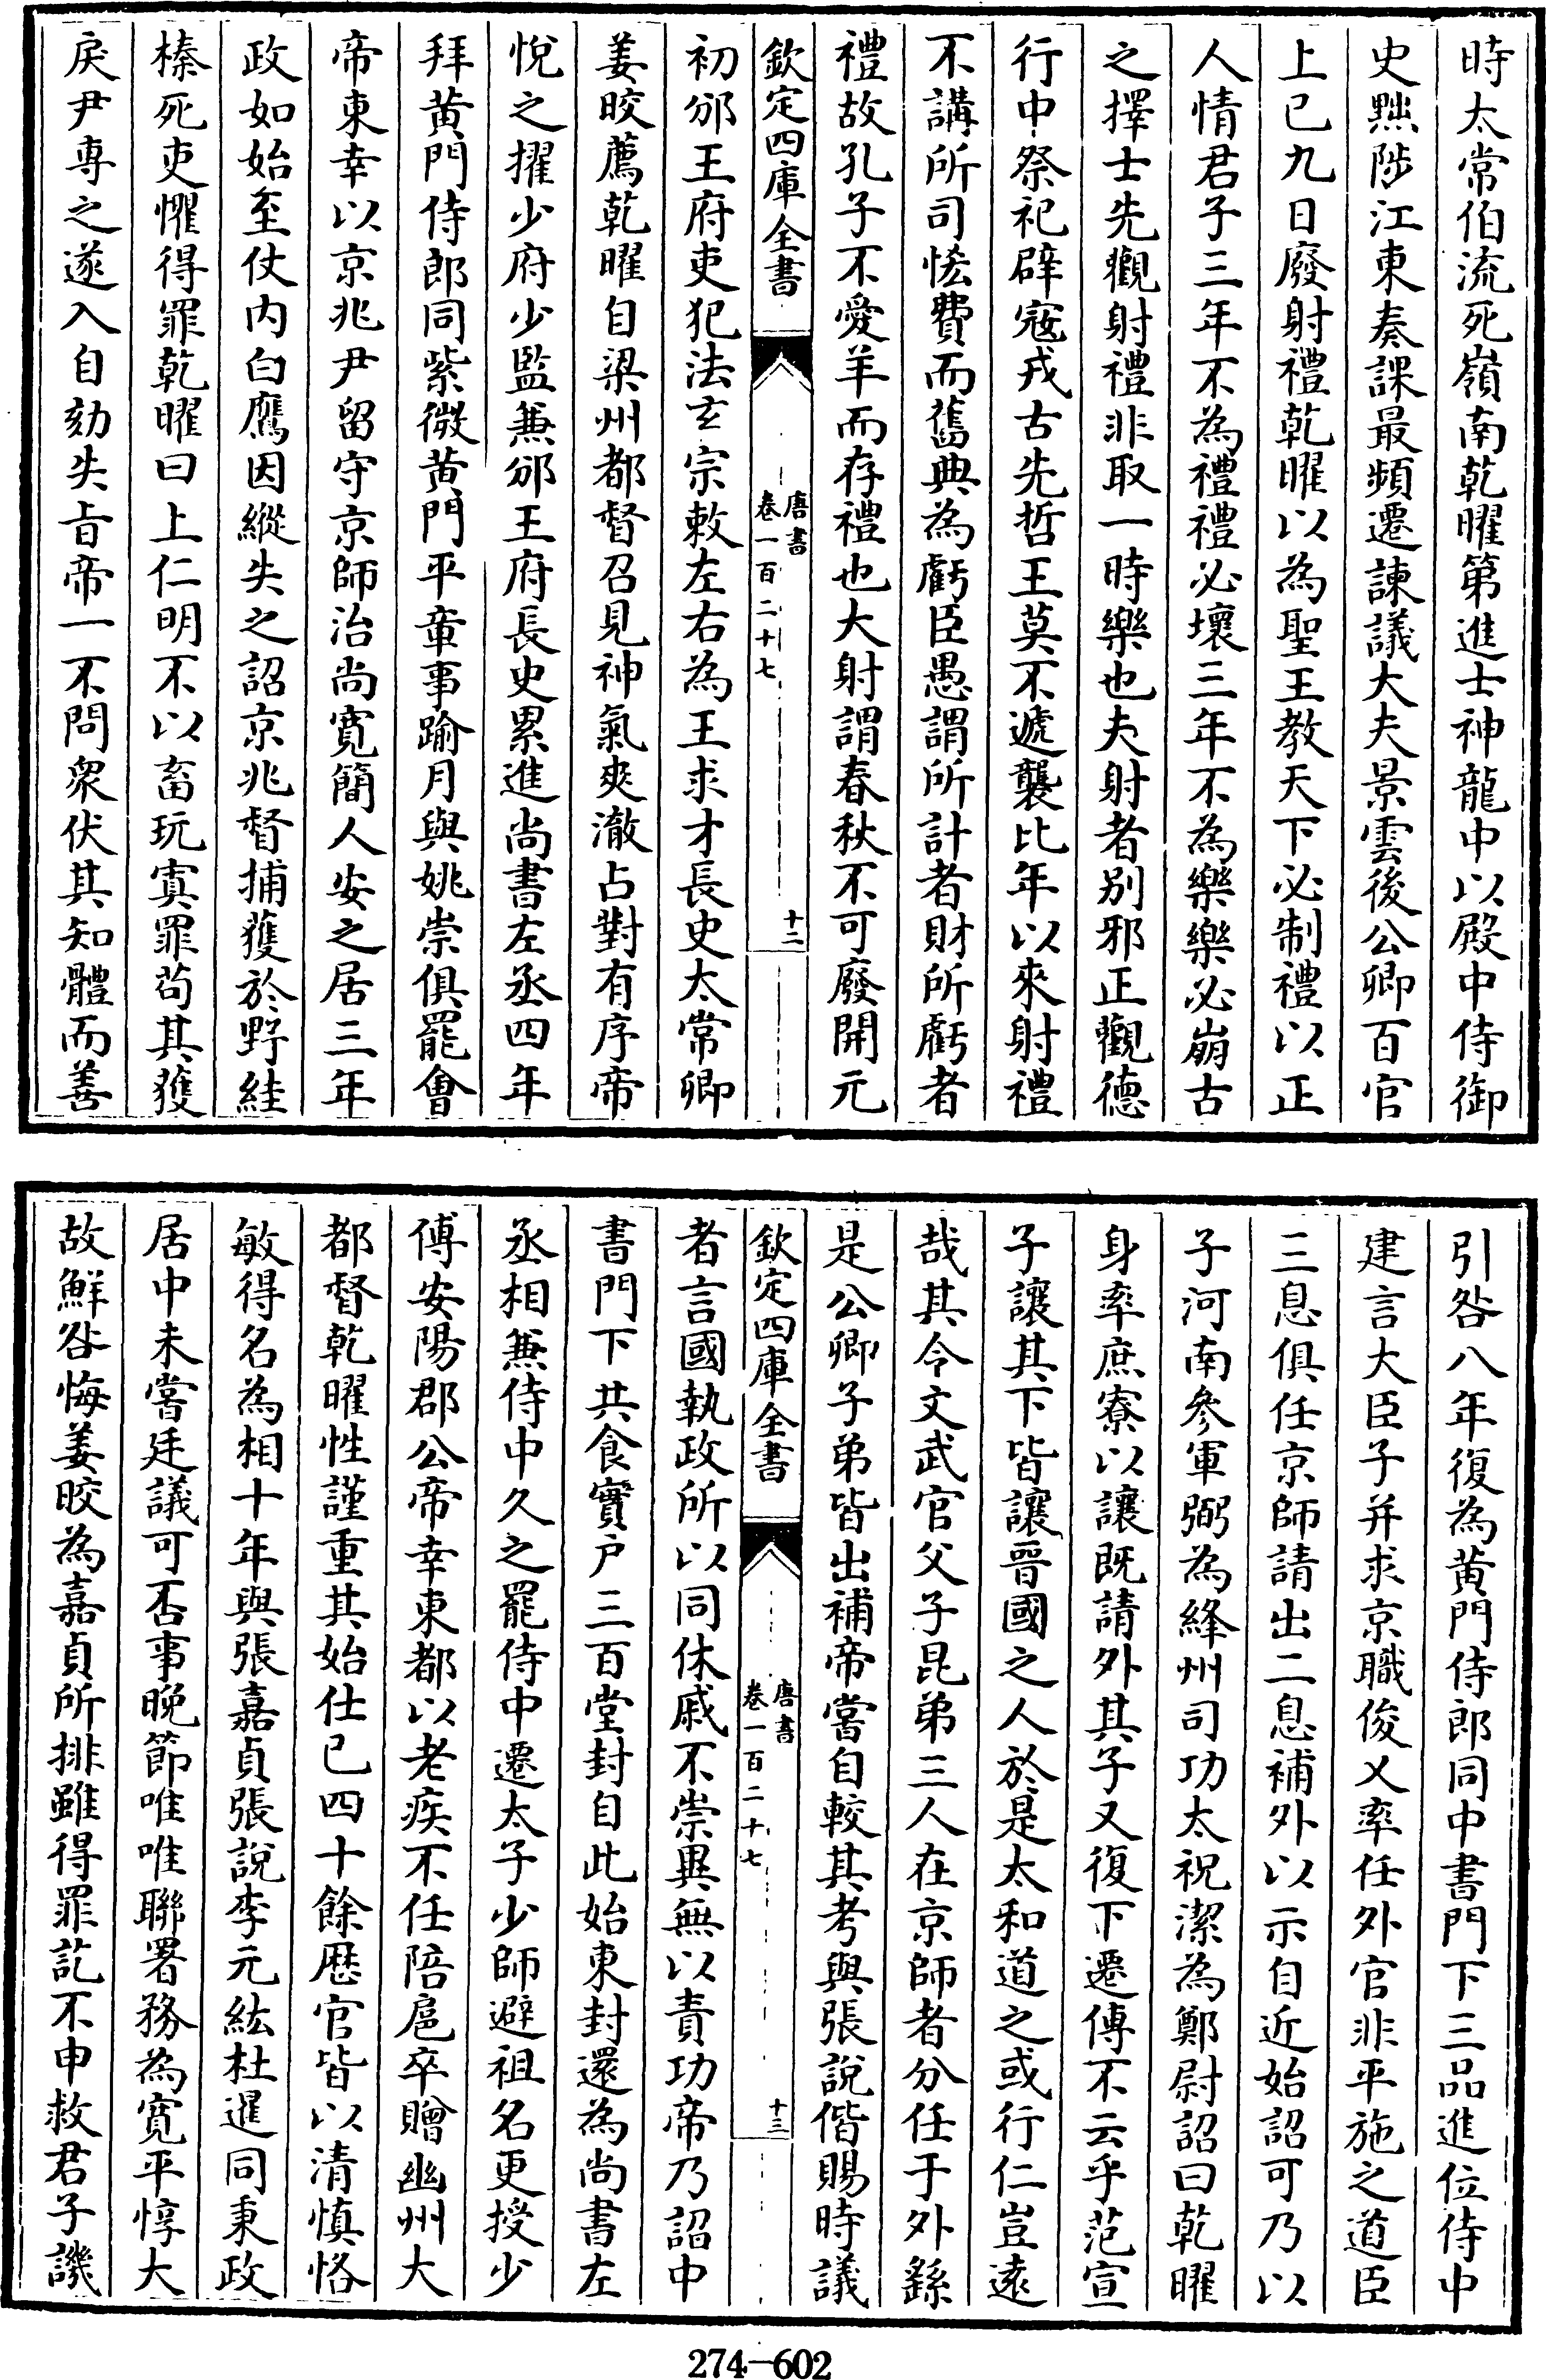 時太常伯流死嶺南乾曜第進士神龍中以殿中侍御
史黜陟江東奏課最頻遷諫議大夫景雲後公卿百官
上巳九日廢射禮乾曜以為聖王教天下必制禮以正
人情君子三年不為禮禮必壞三年不為樂樂必崩古
之擇士先觀射禮非取一時樂也夫射者别邪正觀德
行中祭祀辟寇戎古先哲王莫不遞襲比年以來射禮
不講所司恡費而舊典為虧臣愚謂所計者財所虧者
禮故孔子不愛羊而存禮也大射謂春秋不可廢開元
欽定四庫全書
唐書
卷一百二十七
十二
初邠王府吏犯法玄宗敕左右為王求才長史太常卿
姜晈薦乾曜自梁州都督召見神氣爽澈占對有序帝
悦之擢少府少監兼邠王府長史累進尚書左丞四年
拜黄門侍郎同紫微黄門平章事踰月與姚崇俱罷會
帝東幸以京兆尹留守京師治尚寛簡人安之居三年
政如始至仗内白鷹因縱失之詔京兆督捕獲於野絓
榛死吏懼得罪乾曜曰上仁明不以畜玩寘罪苟其獲
戾尹專之遂入自劾失㫖帝一不問衆伏其知體而善
引咎八年復為黄門侍郎同中書門下三品進位侍中
建言大臣子并求京職俊乂率任外官非平施之道臣
三息俱任京師請出二息補外以示自近始詔可乃以
子河南參軍弼為絳州司功太祝潔為鄭尉詔曰乾曜
身率庶寮以讓既請外其子又復下遷傳不云乎范宣
子讓其下皆讓晉國之人於是太和道之或行仁豈遠
哉其令文武官父子昆弟三人在京師者分任于外繇
是公卿子弟皆出補帝嘗自較其考與張說偕賜時議
欽定四庫全書
唐書
卷一百二十七
十三
者言國執政所以同休戚不崇異無以責功帝乃詔中
書門下共食實户三百堂封自此始東封還為尚書左
丞相兼侍中久之罷侍中遷太子少師避祖名更授少
傅安陽郡公帝幸東都以老疾不任陪扈卒贈幽州大
都督乾曜性謹重其始仕已四十餘歴官皆以清慎恪
敏得名為相十年與張嘉貞張說李元紘杜暹同秉政
居中未嘗廷議可否事晚節唯唯聯署務為寛平惇大
故鮮咎悔姜晈為嘉貞所排雖得罪訖不申救君子譏
274-602